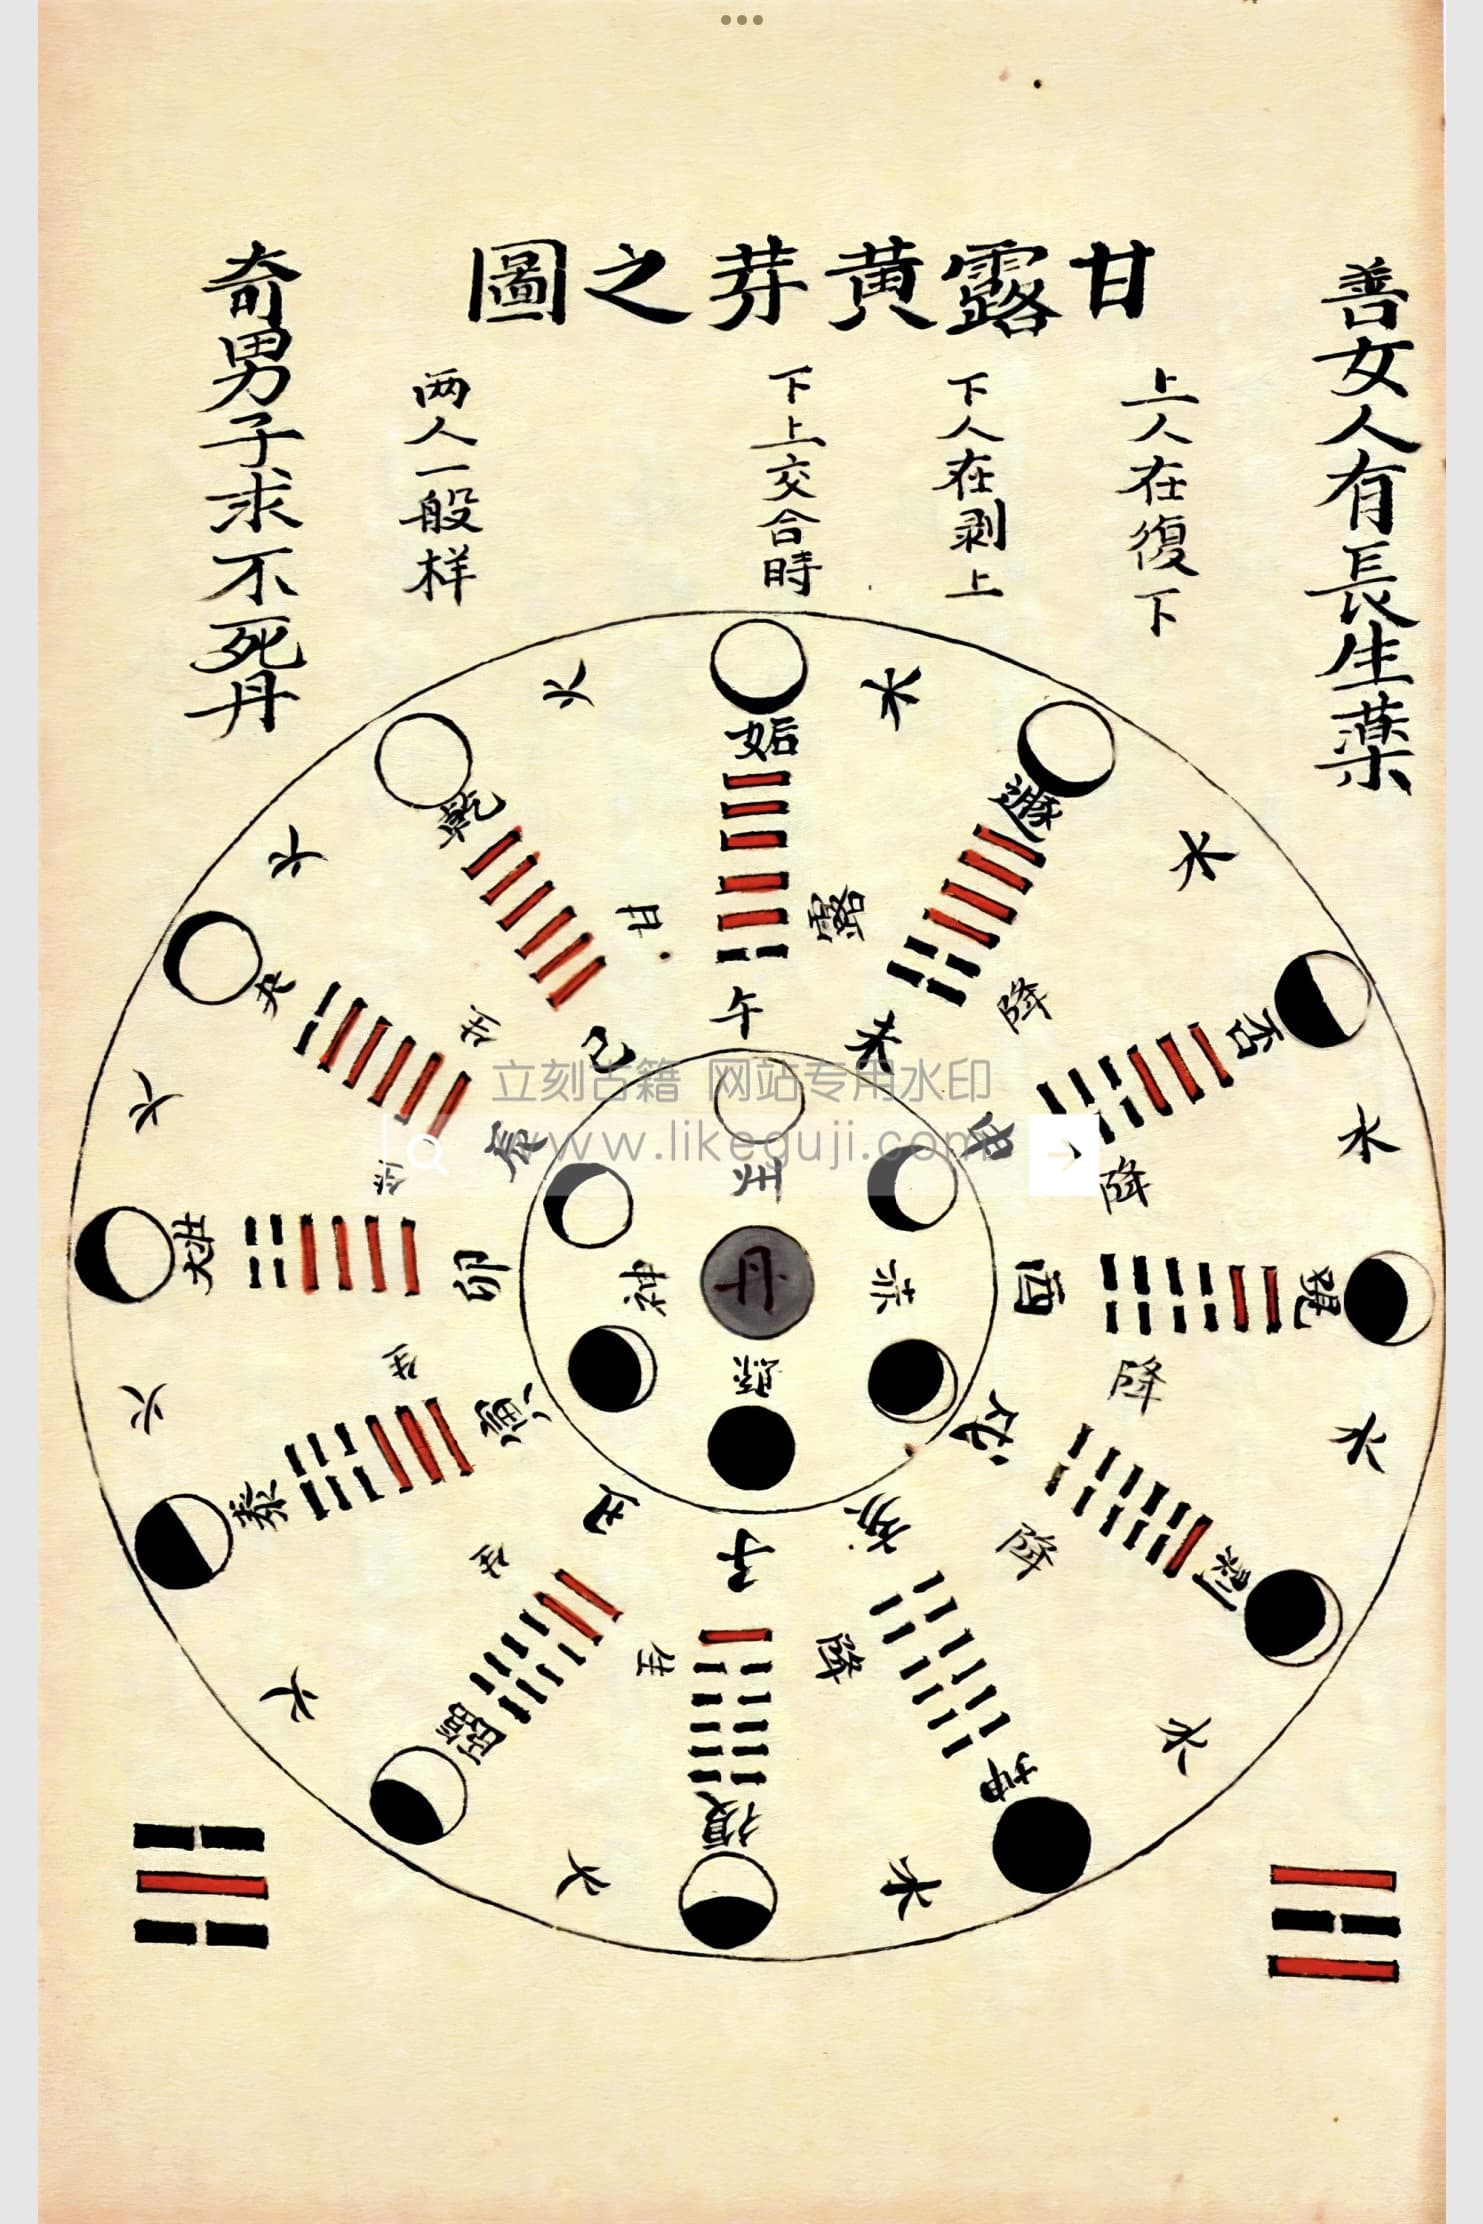 甘露黄芽之圖
善女人有長生藥
上人在復下
下人在剥上
下上交合時
两人一般样
奇男子求不死丹
姤
午
遯
未
否
申
觀
酉
剝
戌
坤
亥
復
子
臨
丑
泰
寅
大壯
卯
夬
辰
乾
巳
甘
露
降
降
降
降
降
生
生
生
生
生
生
水
水
水
水
水
水
火
火
火
火
火
火
丹
神
立刻古籍 网站专用水印
www.likeguji.com